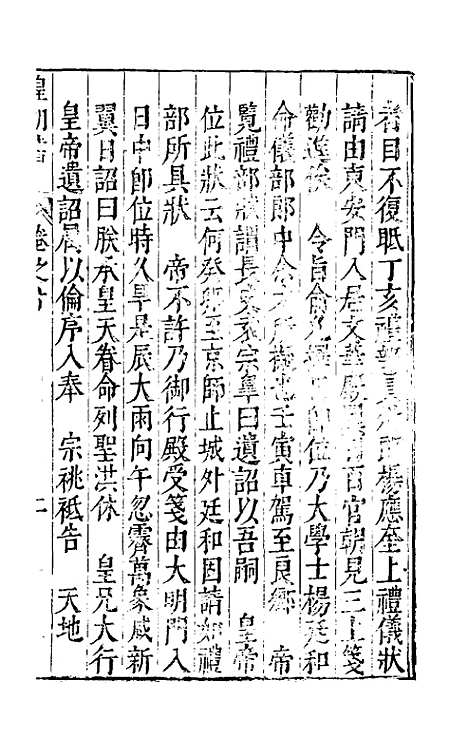 者目不復眡丁亥禮部員外郎楊應奎上禮儀狀
請由東安門入居文華殿翼日百官朝見三上箋
勸進俟　令旨俞允擇日即位乃大學士楊廷和
命儀部郎中余才所擬也壬寅車駕至良鄉　帝
覽禮部狀謂長史袁宗臯曰遺詔以吾嗣　皇帝
位此狀云何癸卯至京師止城外廷和因請如禮
部所具狀　帝不許乃御行殿受箋由大明門入
日中卽位時久旱是辰大雨向午忽霽萬象咸新
翼日詔曰朕承皇天眷命列聖洪休　皇兄大行
皇帝遺詔屬以倫序入奉　宗祧祗告　天地
皇明 卷之